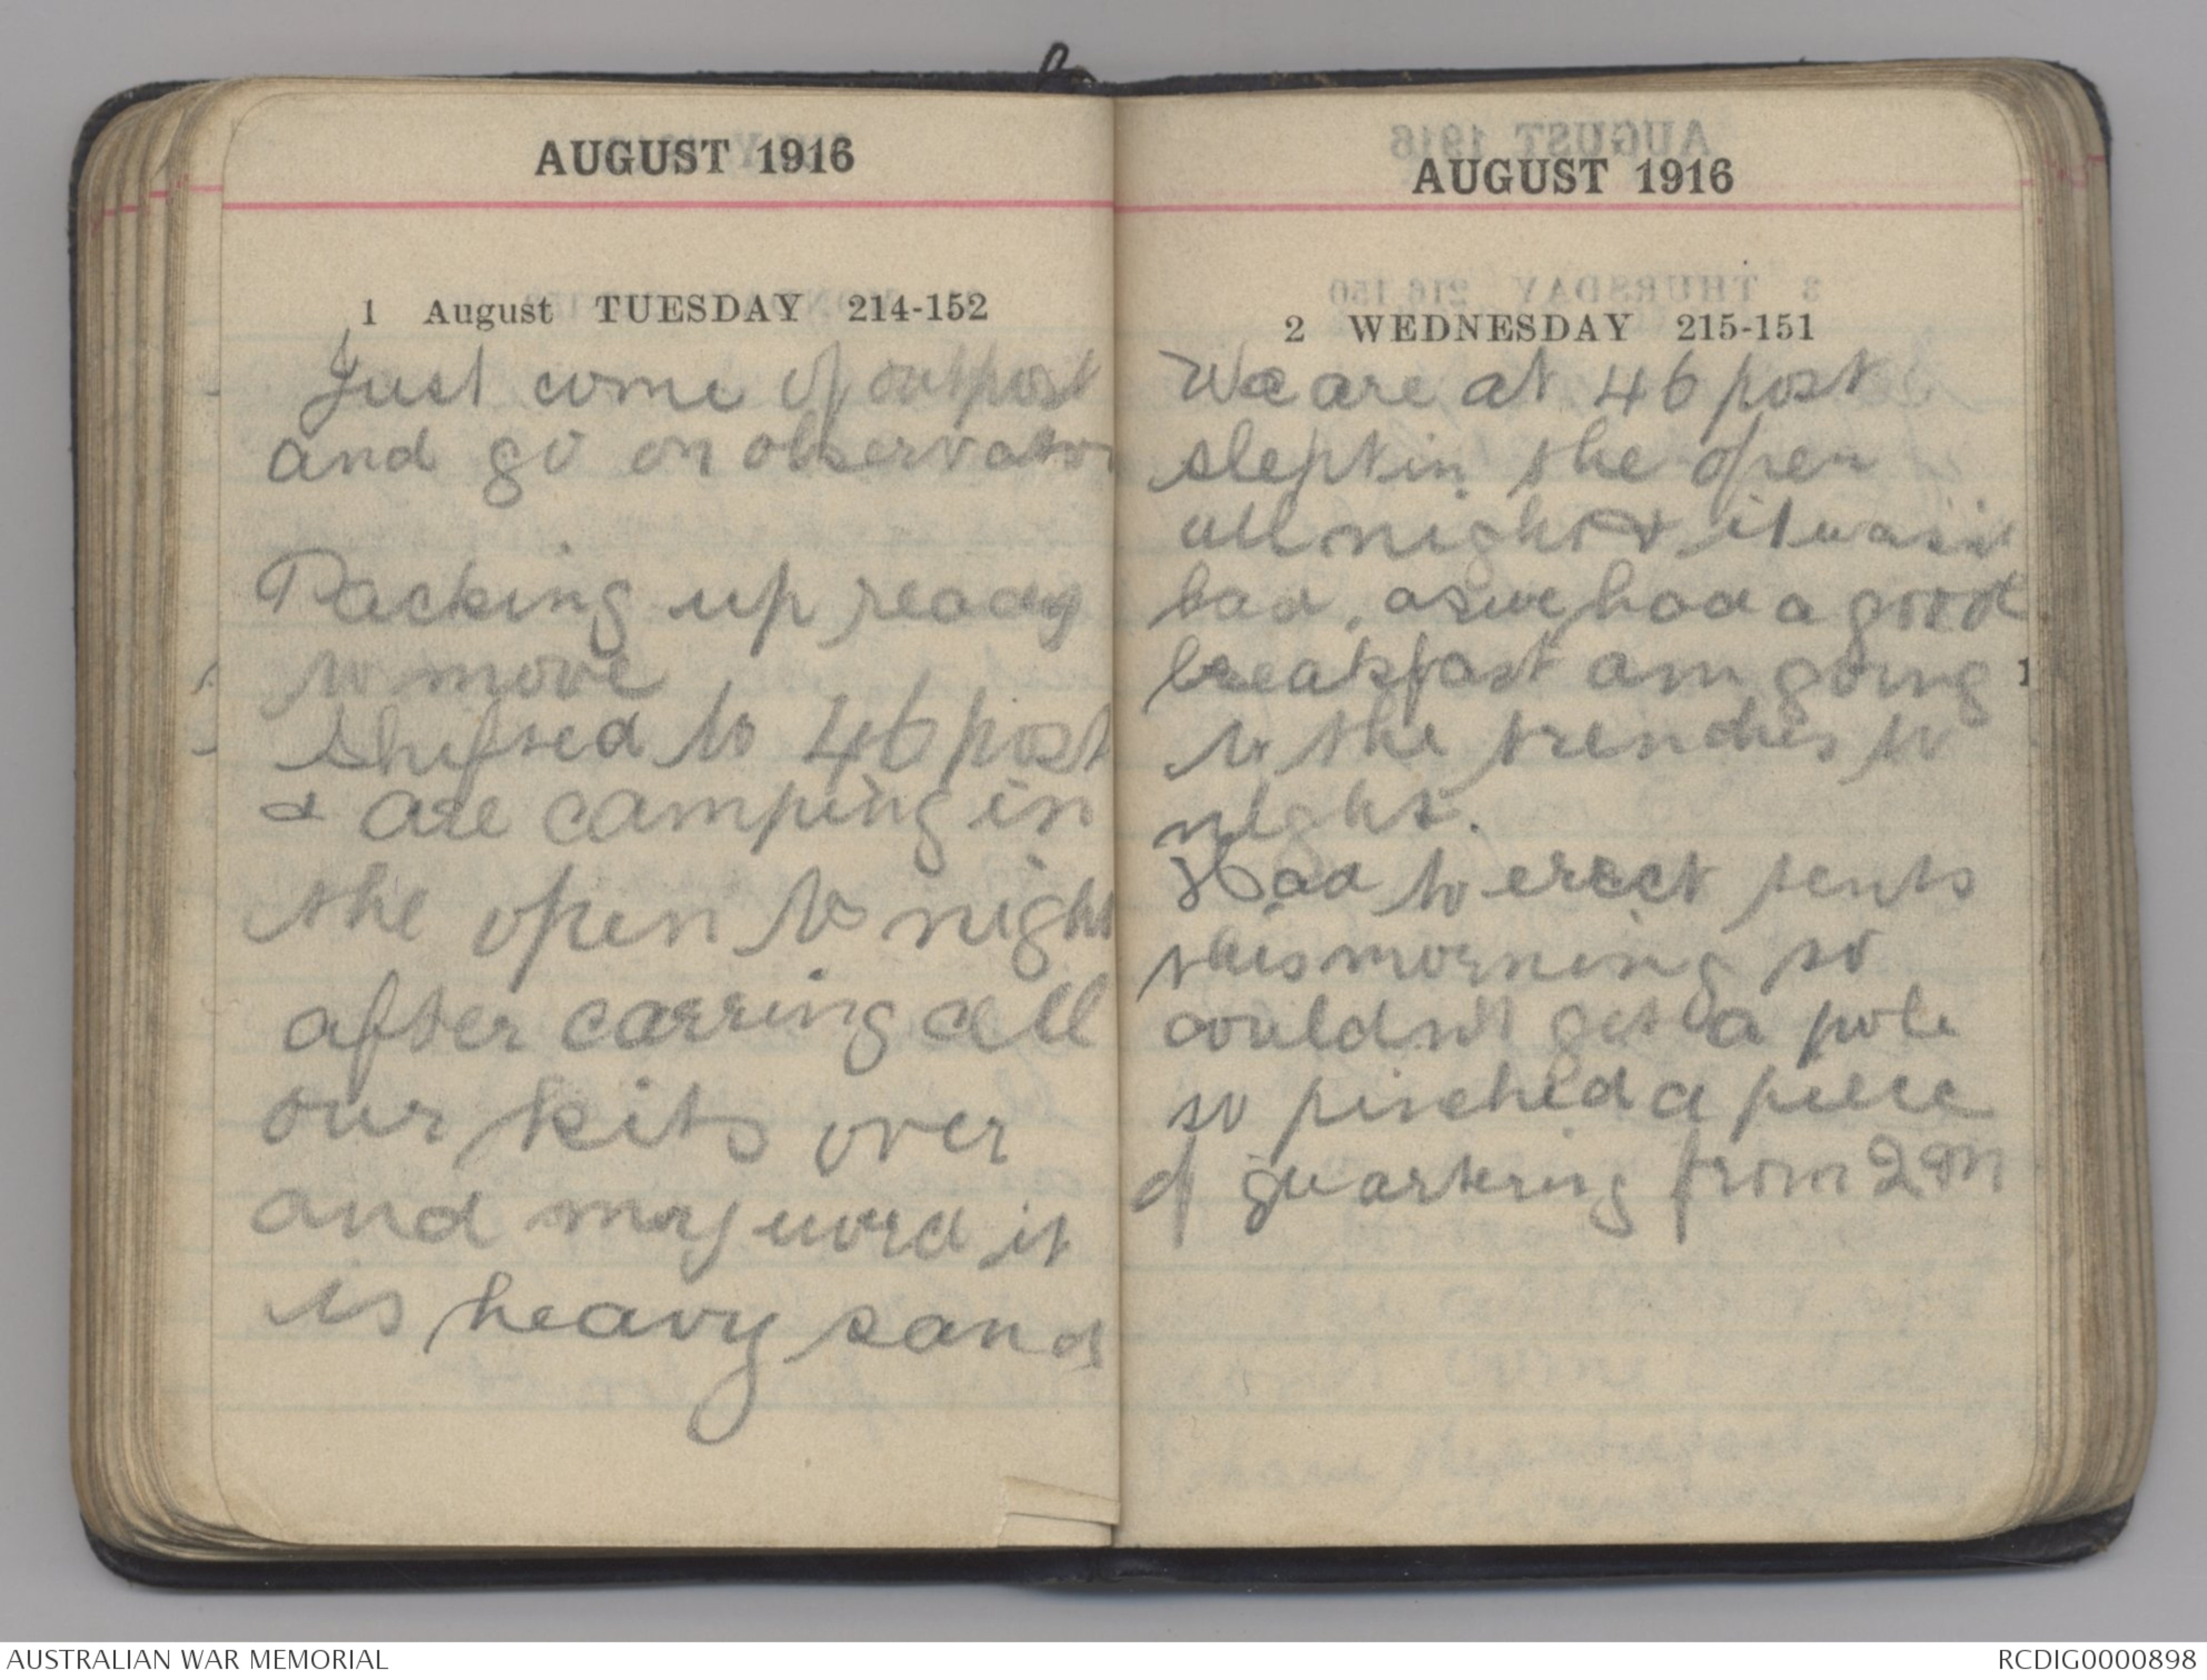 AUGUST 1916
1 August TUESDAY 214-152
Just come of outpost
and go on observation
Packing up ready
to move
Shifted to 46 post
& are camping in
the open to night
after carring all
our kits over
and my word it
is heavy sand
AUGUST 1916
2 WEDNESDAY 215-151
We are at 46 post
slept in the open
all night & it wasnt
bad, as we had a good
breakfast am going
to the trenches to
night.
Had to erect tents
this morning so
couldn't get a pole
so pinched a piece
of quartering from
AUSTRALIAN WAR MEMORIAL
RCDIG0000898